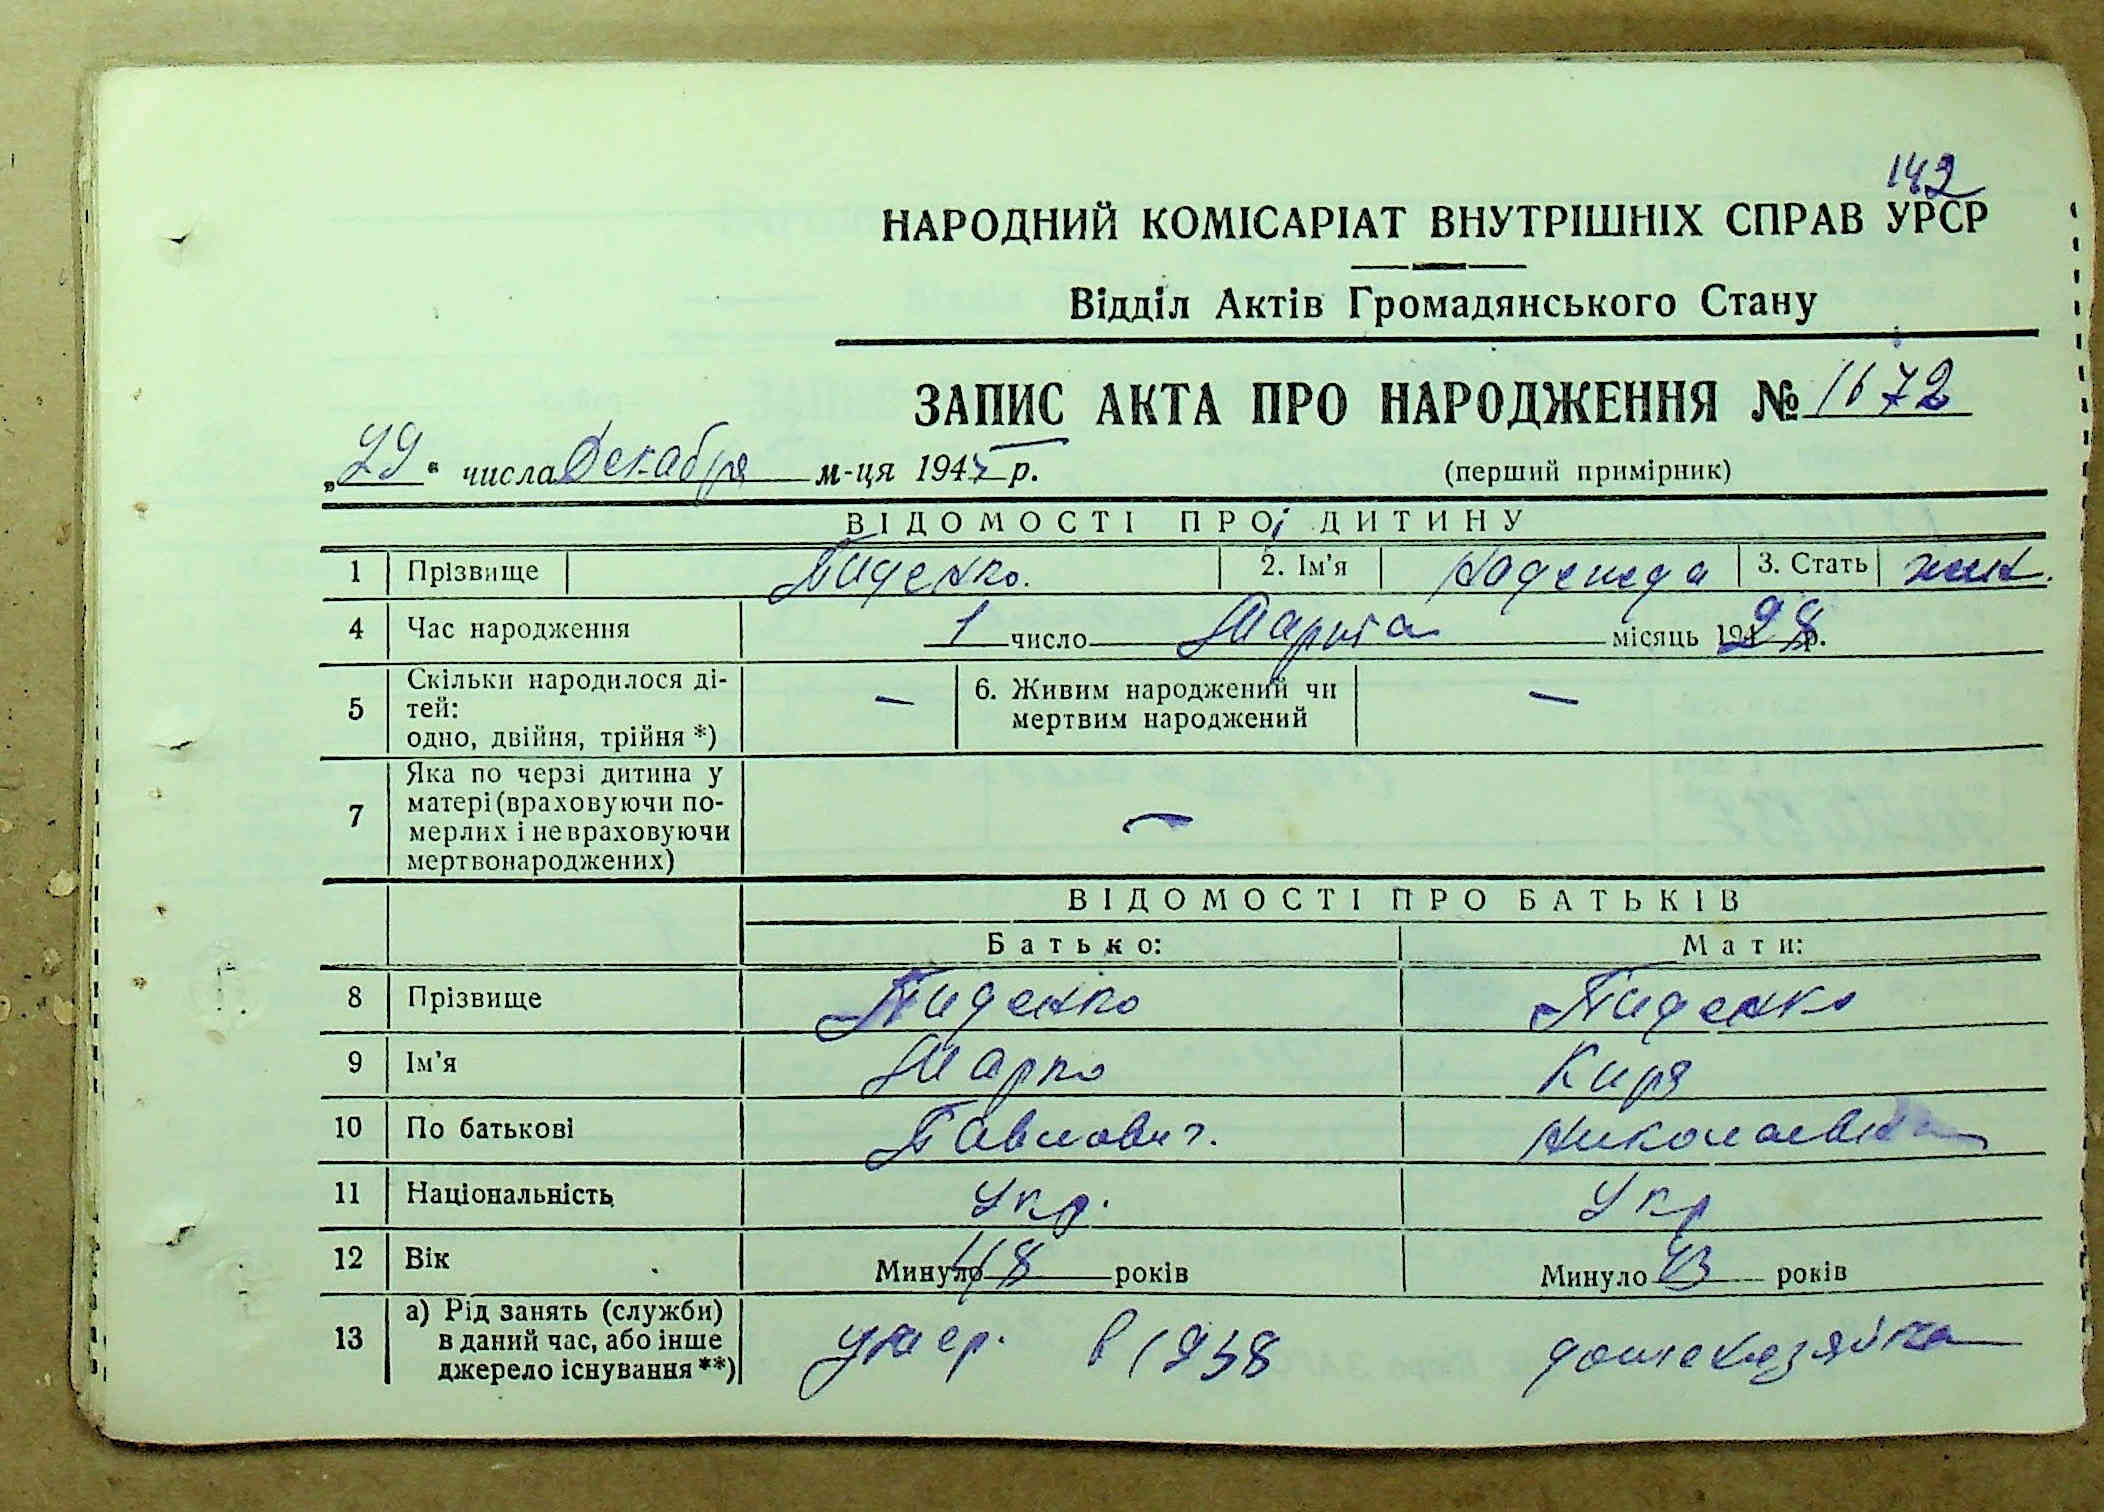 142
НАРОДНИЙ КОМІСАРІАТ ВНУТРІШНІХ СПРАВ УРСР
Відділ Актів Громадянського Стану
ЗАПИС АКТА ПРО НАРОДЖЕННЯ № 1672
„29“ числа Декабря м-ця 1945 р. (перший примірник)
ВІДОМОСТІ ПРО ДИТИНУ
1 Прізвище Пиденко. 2. Ім’я Надежда 3. Стать жен.
4 Час народження 1 число Марта місяць 1928 р.
5 Скільки народилося ді-
тей:
одно, двійня, трійня *) — 6. Живим народжений чи
мертвим народжений —
7 Яка по черзі дитина у
матері (враховуючи по-
мерлих і не враховуючи
мертвонароджених) —
ВІДОМОСТІ ПРО БАТЬКІВ
Батько: Мати:
8 Прізвище Пиденко Пиденко
9 Ім’я Марко Киря
10 По батькові Павлович. Николаевна
11 Національність Укр. Укр
12 Вік Минуло 48 років Минуло 43 років
13 а) Рід занять (служби)
в даний час, або інше
джерело існування **) умер. в 1938 домохозяйка